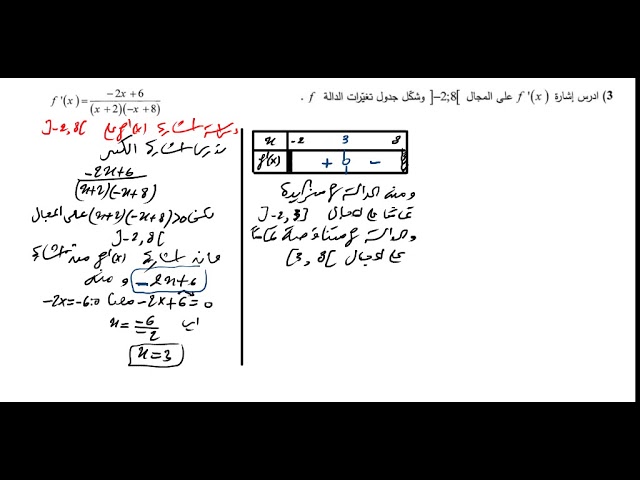 3) ادرس إشارة f '(x) على المجال ]-2;8[ وشكّل جدول تغيّرات الدالة f .
f '(x) = (-2x+6)/((x+2)(-x+8))
دراسة إشارة f'(x) على ]-2,8[
ندرس إشارة الكسر
-2x+6
(x+2)(-x+8)
لكن (x+2)(-x+8)>0 على المجال
]-2,8[
فإنه إشارة f'(x) من إشارة
-2x+6 ومنه
-2x+6=0 معناه -2x=-6
أي x = -6/-2
x=3
x -2 3 8
f'(x) + 0 -
ومنه الدالة f متزايدة
تماما على المجال ]-2,3]
والدالة f متناقصة تماما
على المجال [3,8[